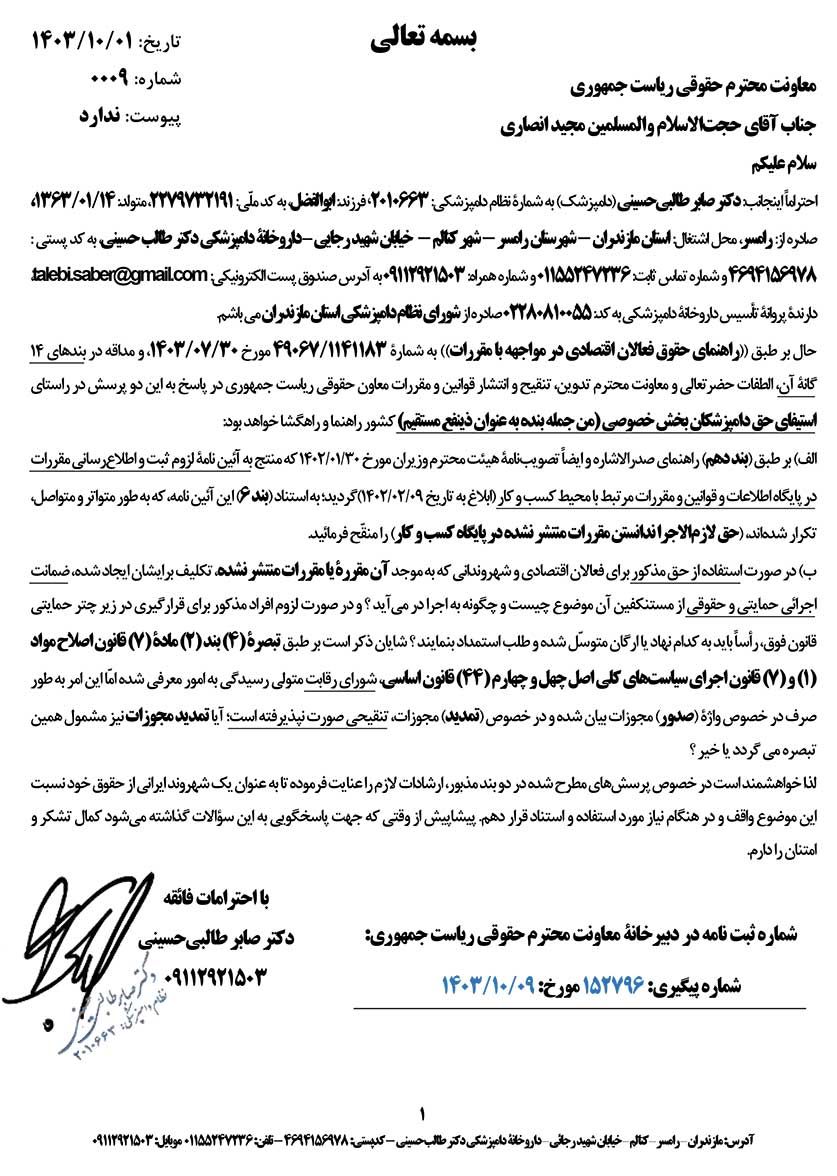 بسمه تعالی
تاریخ: ۱۴۰۳/۱۰/۰۱
شماره: ۰۰۰۹
پیوست: ندارد
معاونت محترم حقوقی ریاست جمهوری
جناب آقای حجت‌الاسلام والمسلمین مجید انصاری
سلام علیکم
احتراماً اینجانب: دکتر صابر طالبی‌حسینی (دامپزشک) به شمارهٔ نظام دامپزشکی: ۲۰۱۰۶۶۳، فرزند: ابوالفضل، به کد ملّی: ۲۲۷۹۷۳۲۱۹۱، متولد: ۱۳۶۳/۰۱/۱۴،
صادره از: رامسر، محل اشتغال: استان مازندران – شهرستان رامسر – شهر کتالم – خیابان شهید رجایی – داروخانهٔ دامپزشکی دکتر طالب حسینی، به کد پستی :
۴۶۹۴۱۵۶۹۷۸ و شماره تماس ثابت: ۰۱۱۵۵۲۴۷۲۳۶ و شماره همراه: ۰۹۱۱۲۹۲۱۵۰۳ به آدرس صندوق پست الکترونیکی: talebi.saber@gmail.com،
دارندهٔ پروانهٔ تأسیس داروخانهٔ دامپزشکی به کد: ۰۲۲۸۰۸۱۰۰۵۵ صادره از شورای نظام دامپزشکی استان مازندران می باشم.
حال بر طبق ((راهنمای حقوق فعالان اقتصادی در مواجهه با مقررات)) به شمارهٔ ۴۹۰۶۷/۱۱۴۱۱۸۳ مورخ ۱۴۰۳/۰۷/۳۰، و مداقه در بندهای ۱۴
گانهٔ آن، الطفات حضرتعالی و معاونت محترم تدوین، تنقیح و انتشار قوانین و مقررات معاون حقوقی ریاست جمهوری در پاسخ به این دو پرسش در راستای
استیفای حق دامپزشکان بخش خصوصی (من جمله بنده به عنوان ذینفع مستقیم) کشور راهنما و راهگشا خواهد بود:
الف) بر طبق (بند دهم) راهنمای صدرالاشاره و ایضاً تصویب‌نامهٔ هیئت محترم وزیران مورخ ۱۴۰۲/۰۱/۳۰ که منتج به آئین نامهٔ لزوم ثبت و اطلاع‌رسانی مقررات
در پایگاه اطلاعات و قوانین و مقررات مرتبط با محیط کسب و کار (ابلاغ به تاریخ ۱۴۰۲/۰۲/۰۹) گردید؛ به استناد (بند ۶) این آئین نامه، که به طور متواتر و متواصل،
تکرار شده‌اند، (حق لازم‌الاجرا ندانستن مقررات منتشر نشده در پایگاه کسب و کار) را منقّح فرمائید.
ب) در صورت استفاده از حق مذکور برای فعالان اقتصادی و شهروندانی که به موجد آن مقررهٔ یا مقررات منتشر نشده، تکلیف برایشان ایجاد شده، ضمانت
اجرائی حمایتی و حقوقی از مستنکفین آن موضوع چیست و چگونه به اجرا در می‌آید ؟ و در صورت لزوم افراد مذکور برای قرارگیری در زیر چتر حمایتی
قانون فوق، رأساً باید به کدام نهاد یا ارگان متوسّل شده و طلب استمداد بنمایند ؟ شایان ذکر است بر طبق تبصرهٔ (۴) بند (۲) مادهٔ (۷) قانون اصلاح مواد
(۱) و (۷) قانون اجرای سیاست‌های کلی اصل چهل و چهارم (۴۴) قانون اساسی، شورای رقابت متولی رسیدگی به امور معرفی شده امّا این امر به طور
صرف در خصوص واژهٔ (صدور) مجوزات بیان شده و در خصوص (تمدید) مجوزات، تنقیحی صورت نپذیرفته است؛ آیا تمدید مجوزات نیز مشمول همین
تبصره می گردد یا خیر ؟
لذا خواهشمند است در خصوص پرسش‌های مطرح شده در دو بند مذبور، ارشادات لازم را عنایت فرموده تا به عنوان یک شهروند ایرانی از حقوق خود نسبت
این موضوع واقف و در هنگام نیاز مورد استفاده و استناد قرار دهم. پیشاپیش از وقتی که جهت پاسخگویی به این سؤالات گذاشته می‌شود کمال تشکر و
امتنان را دارم.
با احترامات فائقه
دکتر صابر طالبی‌حسینی
۰۹۱۱۲۹۲۱۵۰۳
دکتر صابر طالبی حسینی
نظام دامپزشکی: ۲۰۱۰۶۶۳
شماره ثبت نامه در دبیرخانهٔ معاونت محترم حقوقی ریاست جمهوری:
شماره پیگیری: ۱۵۲۷۹۶ مورخ: ۱۴۰۳/۱۰/۰۹
۱
آدرس: مازندران – رامسر – کتالم – خیابان شهید رجائی – داروخانهٔ دامپزشکی دکتر طالب حسینی – کدپستی: ۴۶۹۴۱۵۶۹۷۸ – تلفن: ۰۱۱۵۵۲۴۷۲۳۶ موبایل: ۰۹۱۱۲۹۲۱۵۰۳